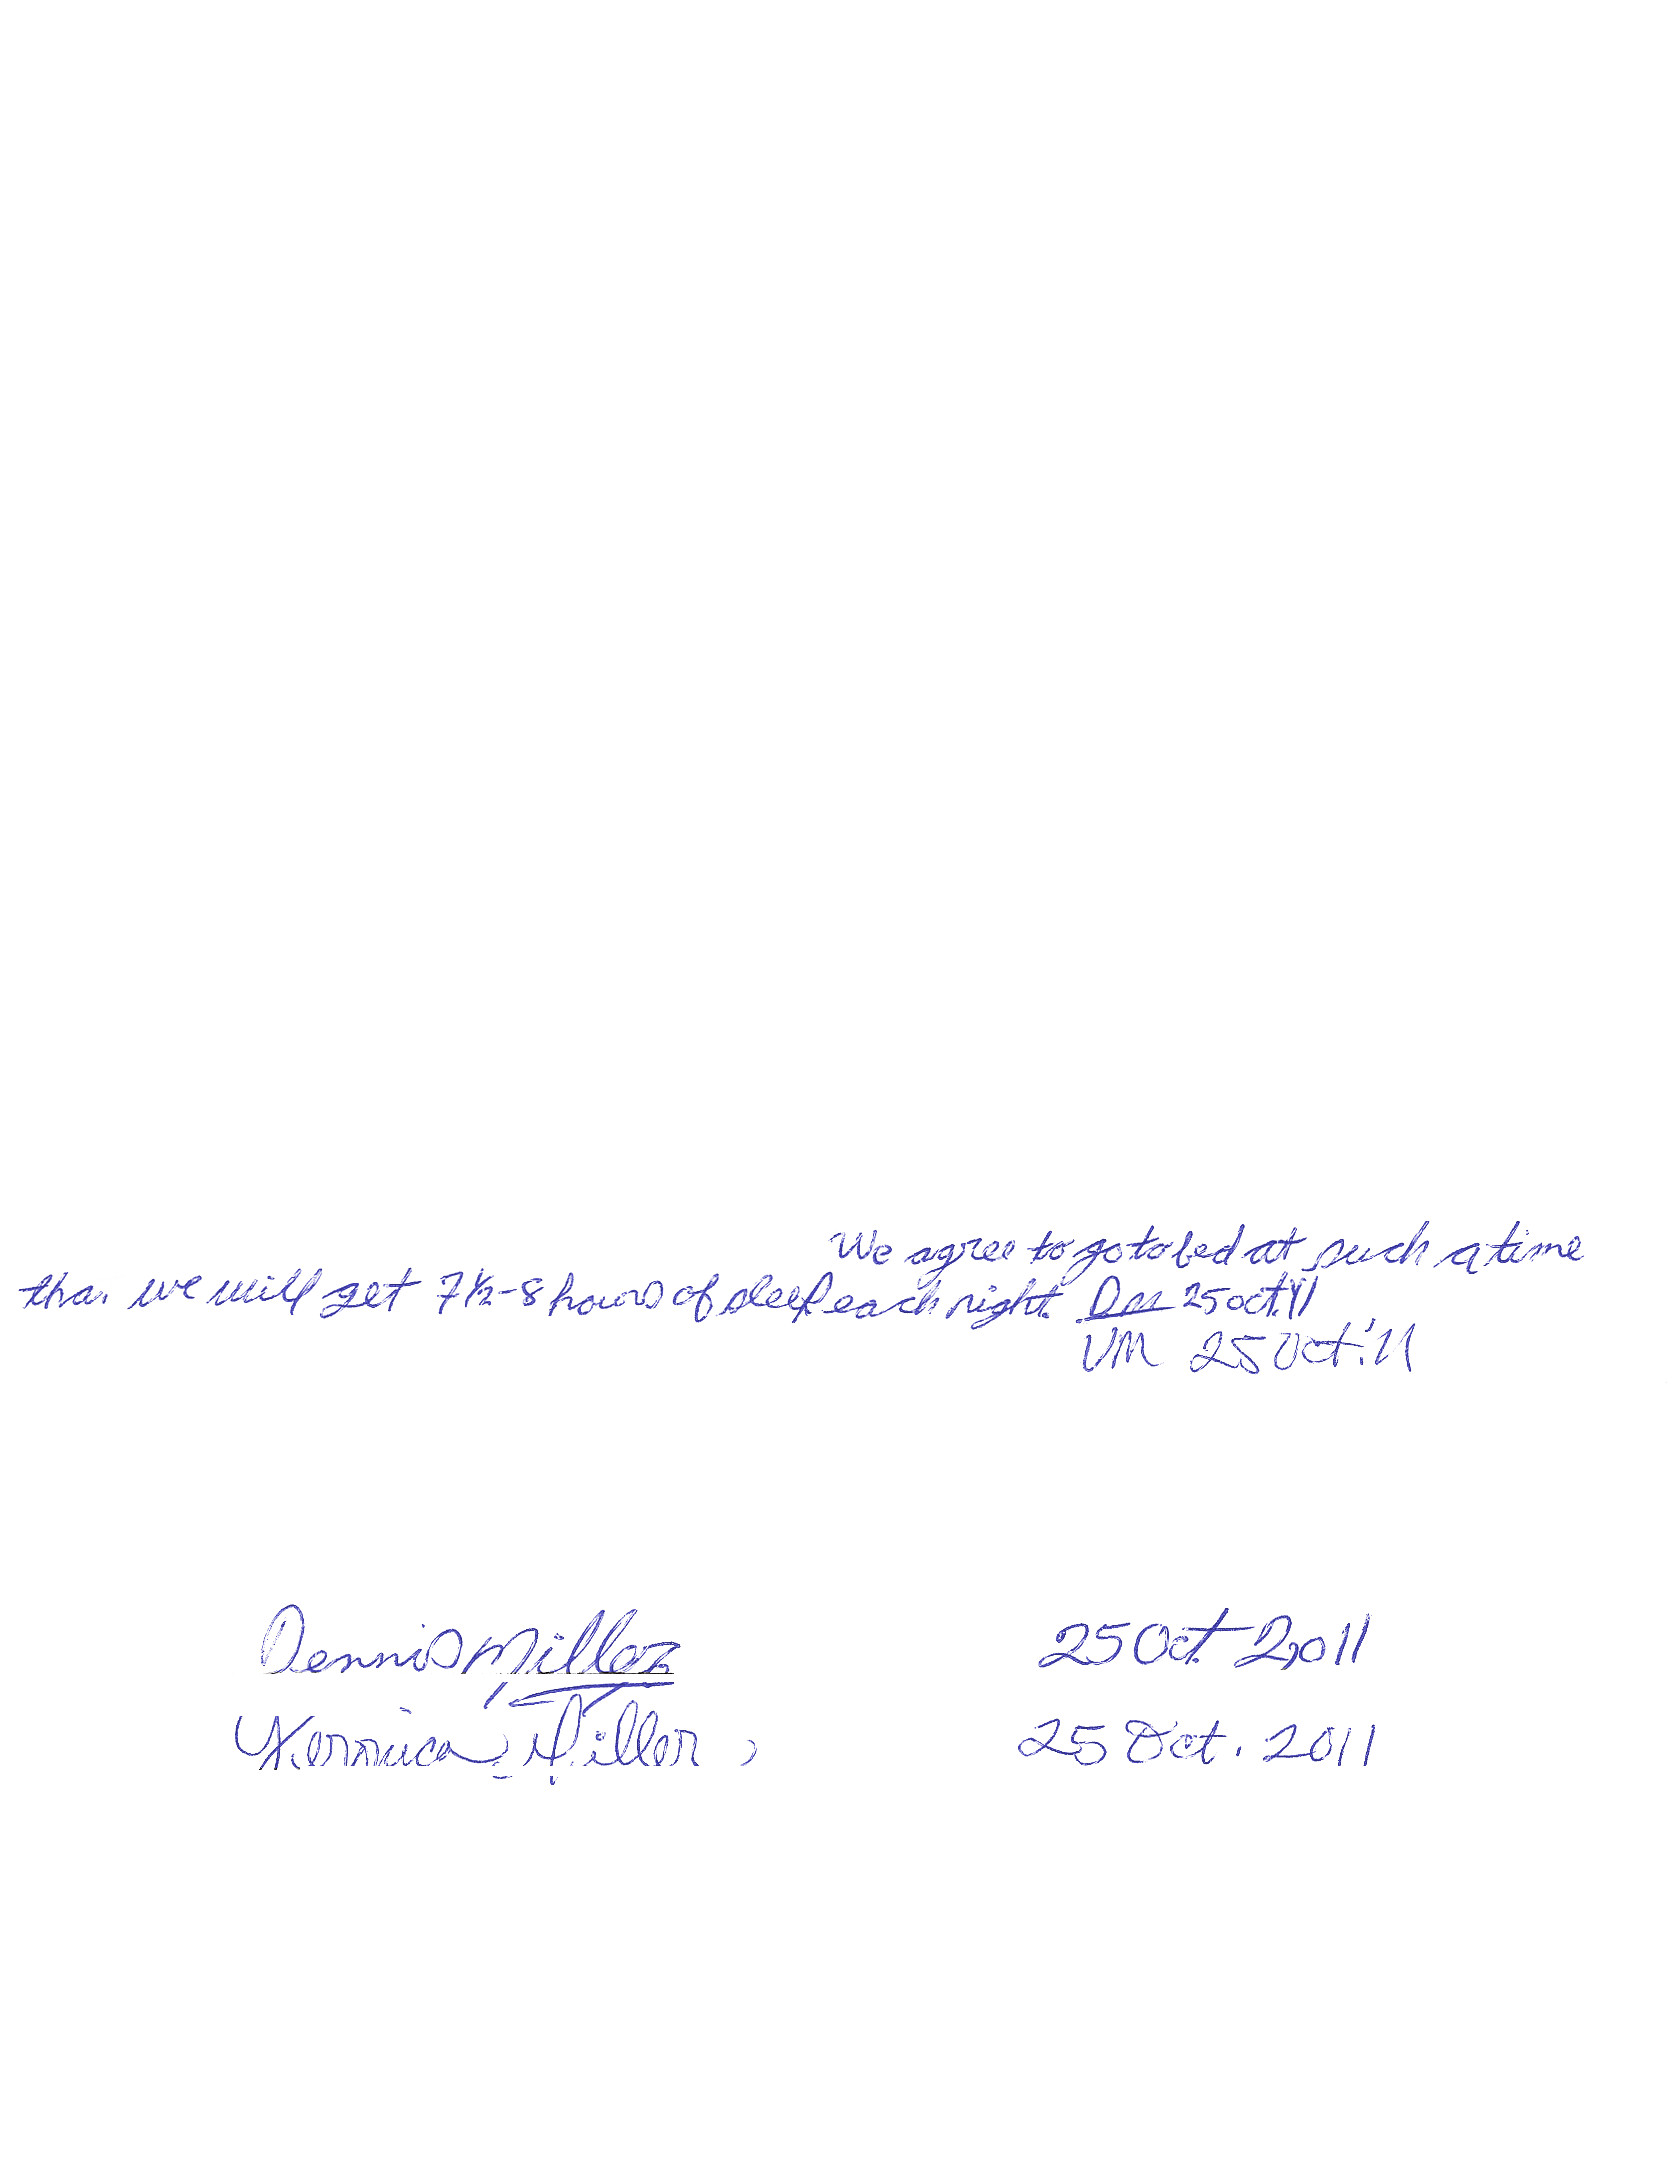 We agree to go to bed at such a time
tha. we will get 7½-8 hours of sleep each night. DM 25 Oct. '11
VM 25 Oct. '11
Dennis Miller 25 Oct. 2011
Veronica Miller 25 Oct. 2011